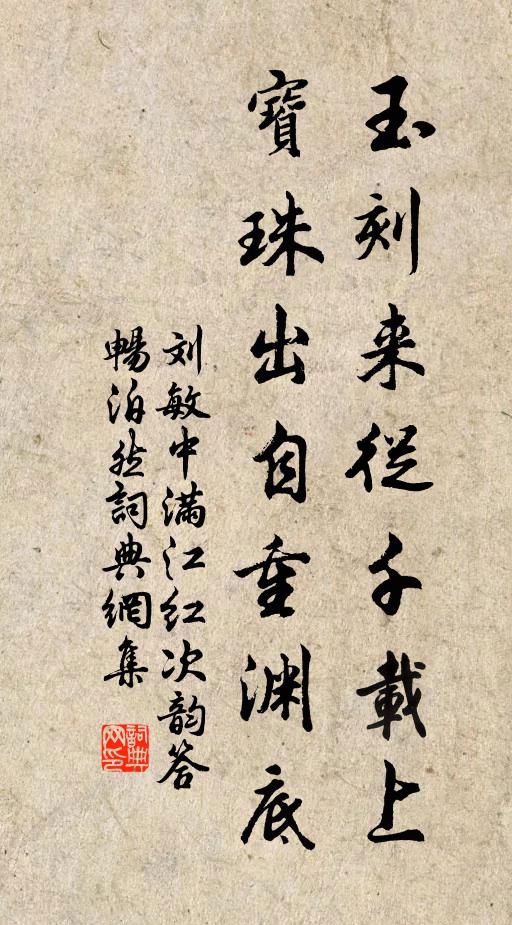 玉刻来從千載上
寶珠出自重渊底
刘敏中满江红次韵答
暢泊然詞典網集
詞典网印